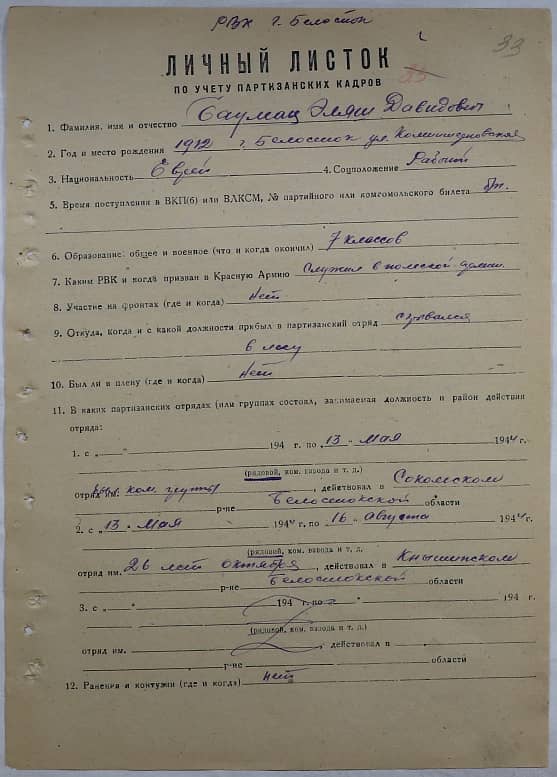 РВК г. Белосток
33
ЛИЧНЫЙ ЛИСТОК
ПО УЧЕТУ ПАРТИЗАНСКИХ КАДРОВ
1. Фамилия, имя и отчество Бауман Эляш Давидович
2. Год и место рождения 1912 г. Белосток ул. Коминтерновская
3. Национальность Еврей 4. Соцположение Рабочий
5. Время поступления в ВКП(б) или ВЛКСМ, № партийного или комсомольского билета б/п.
6. Образование: общее и военное (что и когда окончил) 7 классов
7. Каким РВК и когда призван в Красную Армию Служил в польской армии
8. Участие на фронтах (где и когда) Нет
9. Откуда, когда и с какой должности прибыл в партизанский отряд скрывался
в лесу
10. Был ли в плену (где и когда) Нет
11. В каких партизанских отрядах (или группах состоял, занимаемая должность и район действия
отряда:
1. с „ " 194 г. по 13 " Мая 1944 г.
(рядовой, ком. взвода и т. д.)
отряд им. ком. группы, действовал в Сокольском
р-не Белостокской области
2. с „13 " Мая 1944 г. по „16 " Августа 1944 г.
(рядовой, ком. взвода и т. д.
отряд им. 26 лет октября, действовал в Кнышинском
р-не Белостокской области
3. с „ " 194 г. по „ " 194 г.
(рядовой, ком. взвода и т. д.)
отряд им. , действовал в
р-не области
12. Ранения и контузии (где и когда) Нет